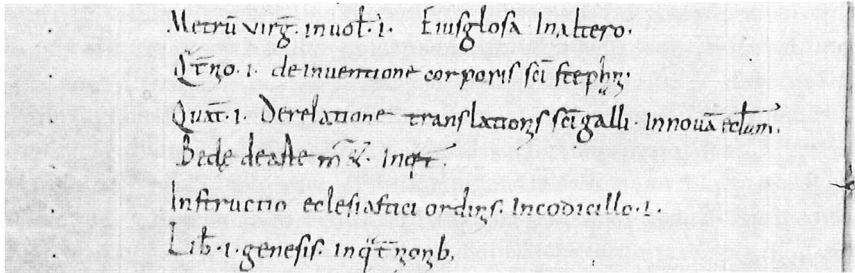 Metrū virḡ. in vol̄. i. Eius glosa In altero.
Q̄t̄nio. i. de inventione corporis sc̄i stephani.
Quat̄. i. De relatione translationis sc̄i galli. In novā ecl̄am.
Bedę de arte
Instructio eclesiastici ordinis. In codicillo. i.
Lib̄. i. genesis. in q̄t̄nionib.